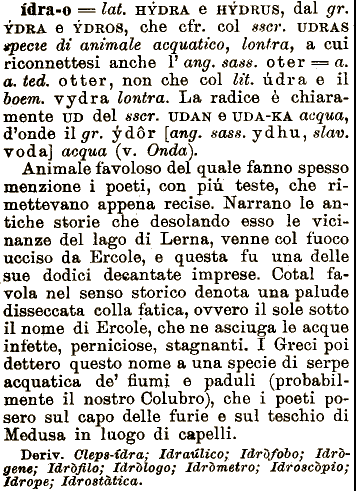 ídra-o = lat. HÝDRA e HÝDRUS, dal gr.
ÝDRA e ÝDROS, che cfr. col sscr. UDRAS
specie di animale acquatico, lontra, a cui
riconnettesi anche l' ang. sass. oter = a.
a. ted. otter, non che col lit. údra e il
boem. vydra lontra. La radice è chiara-
mente UD del sscr. UDAN e UDA-KA acqua,
d'onde il gr. ýdôr [ang. sass. ydhu, slav.
voda] acqua (v. Onda).
Animale favoloso del quale fanno spesso
menzione i poeti, con più teste, che ri-
mettevano appena recise. Narrano le an-
tiche storie che desolando esso le vici-
nanze del lago di Lerna, venne col fuoco
ucciso da Ercole, e questa fu una delle
sue dodici decantate imprese. Cotal fa-
vola nel senso storico denota una palude
disseccata colla fatica, ovvero il sole sotto
il nome di Ercole, che ne asciuga le acque
infette, perniciose, stagnanti. I Greci poi
dettero questo nome a una specie di serpe
acquatica de' fiumi e paduli (probabil-
mente il nostro Colubro), che i poeti po-
sero sul capo delle furie e sul teschio di
Medusa in luogo di capelli.
Deriv. Cleps-idra; Idraúlico; Idròfobo; Idrò-
gene; Idròfilo; Idròlogo; Idròmetro; Idroscòpio;
Idrope; Idrostàtica.